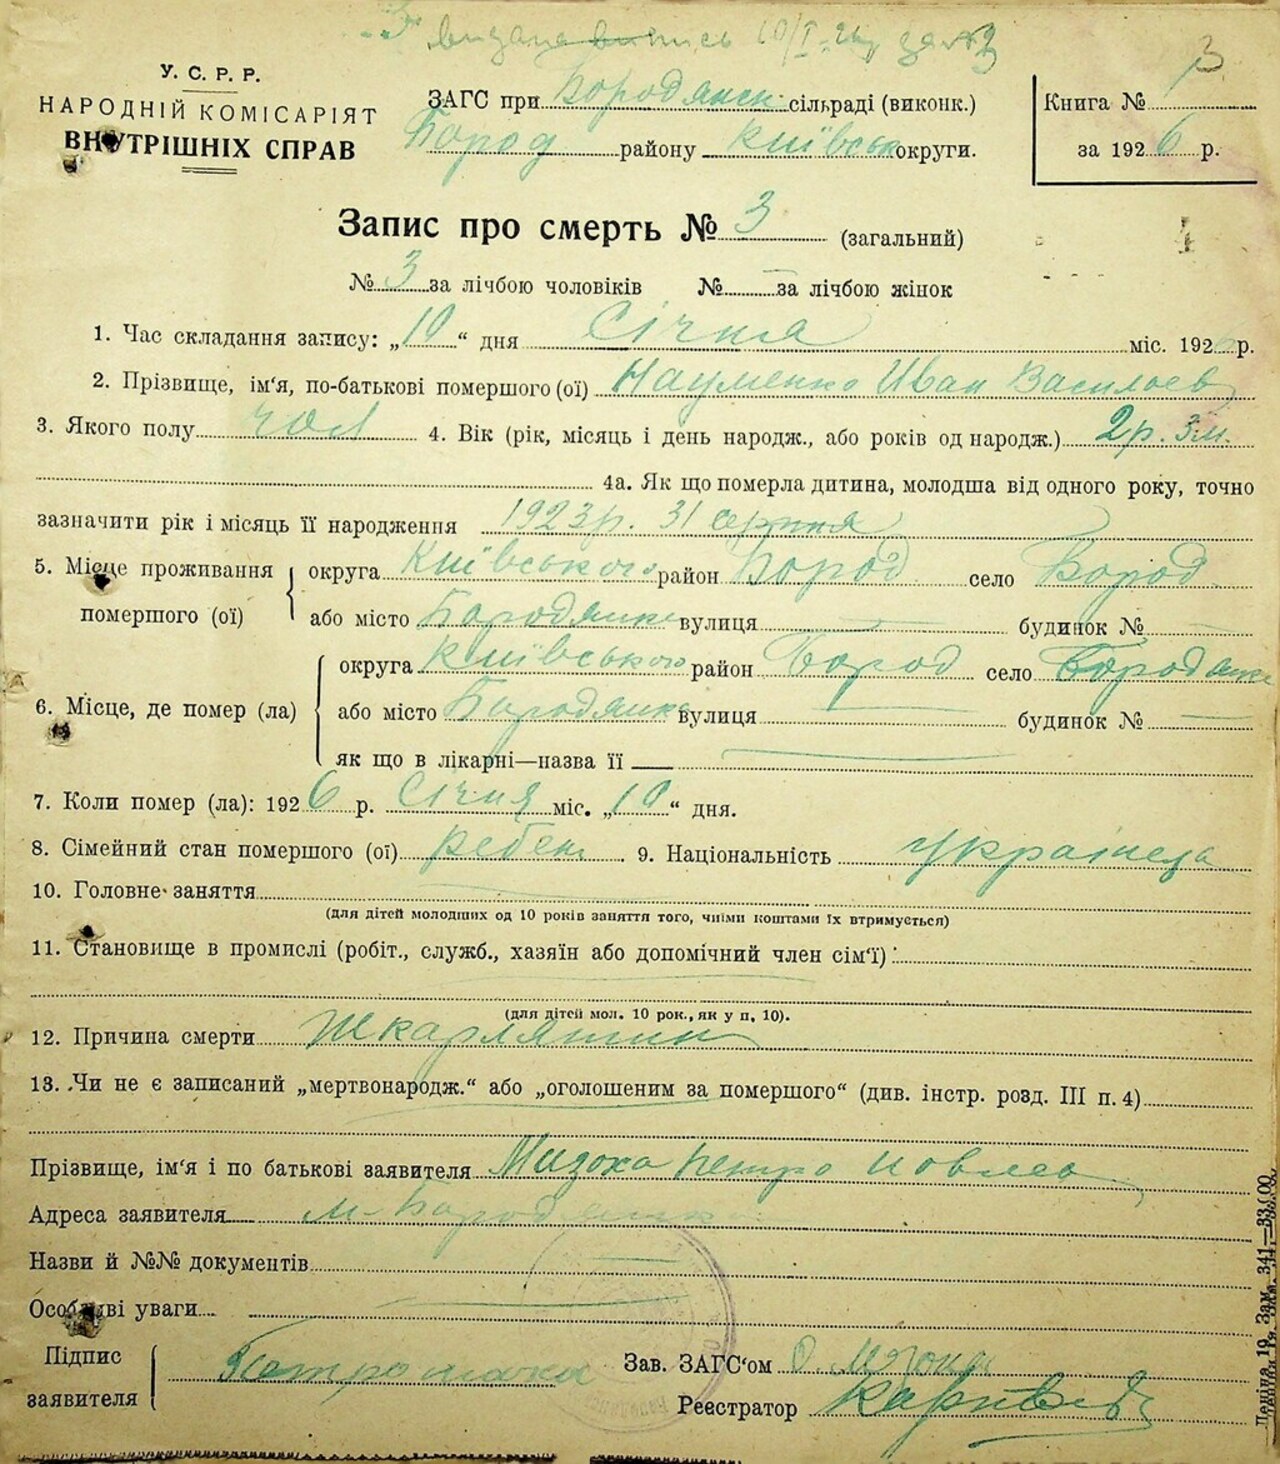 видана випись 10/I-26р за №3
3
У. С. Р. Р.
НАРОДНІЙ КОМІСАРІЯТ
ВНУТРІШНІХ СПРАВ
ЗАГС при Бородянск сільраді (виконк.)
Бород району Київськ округи.
Книга № 1
за 1926 р.
Запис про смерть № 3 (загальний)
№ 3 за лічбою чоловіків № — за лічбою жінок
1. Час складання запису: „10“ дня Січня міс. 1926 р.
2. Прізвище, ім'я, по-батькові помершого (ої) Науменко Иван Васильев
3. Якого полу чол 4. Вік (рік, місяць і день народж., або років од народж.) 2р. 3м.
4а. Як що померла дитина, молодша від одного року, точно
зазначити рік і місяць її народження 1923р. 31 серпня
5. Місце проживання помершого (ої) округа Київського район Бород село Бород
або місто Бородянка вулиця — будинок № —
6. Місце, де помер (ла) округа Київського район Бород село Бородянка
або місто Бородянка вулиця — будинок № —
як що в лікарні—назва її —
7. Коли помер (ла): 1926 р. Січня міс. „10“ дня.
8. Сімейний стан помершого (ої) ребен 9. Національність українець
10. Головне заняття —
(для дітей молодших од 10 років заняття того, чиїми коштами їх втримується)
11. Становище в промислі (робіт., служб., хазяїн або допомічний член сім'ї):
(для дітей мол. 10 рок., як у п. 10).
12. Причина смерти Шкарлятин
13. Чи не є записаний „мертвонародж.“ або „оголошеним за помершого“ (див. інстр. розд. III п. 4)
Прізвище, ім'я і по батькові заявителя Петро
Адреса заявителя м. Бородянк
Назви й №№ документів —
Особливі уваги —
Підпис заявителя Петро
Зав. ЗАГС'ом
Реестратор